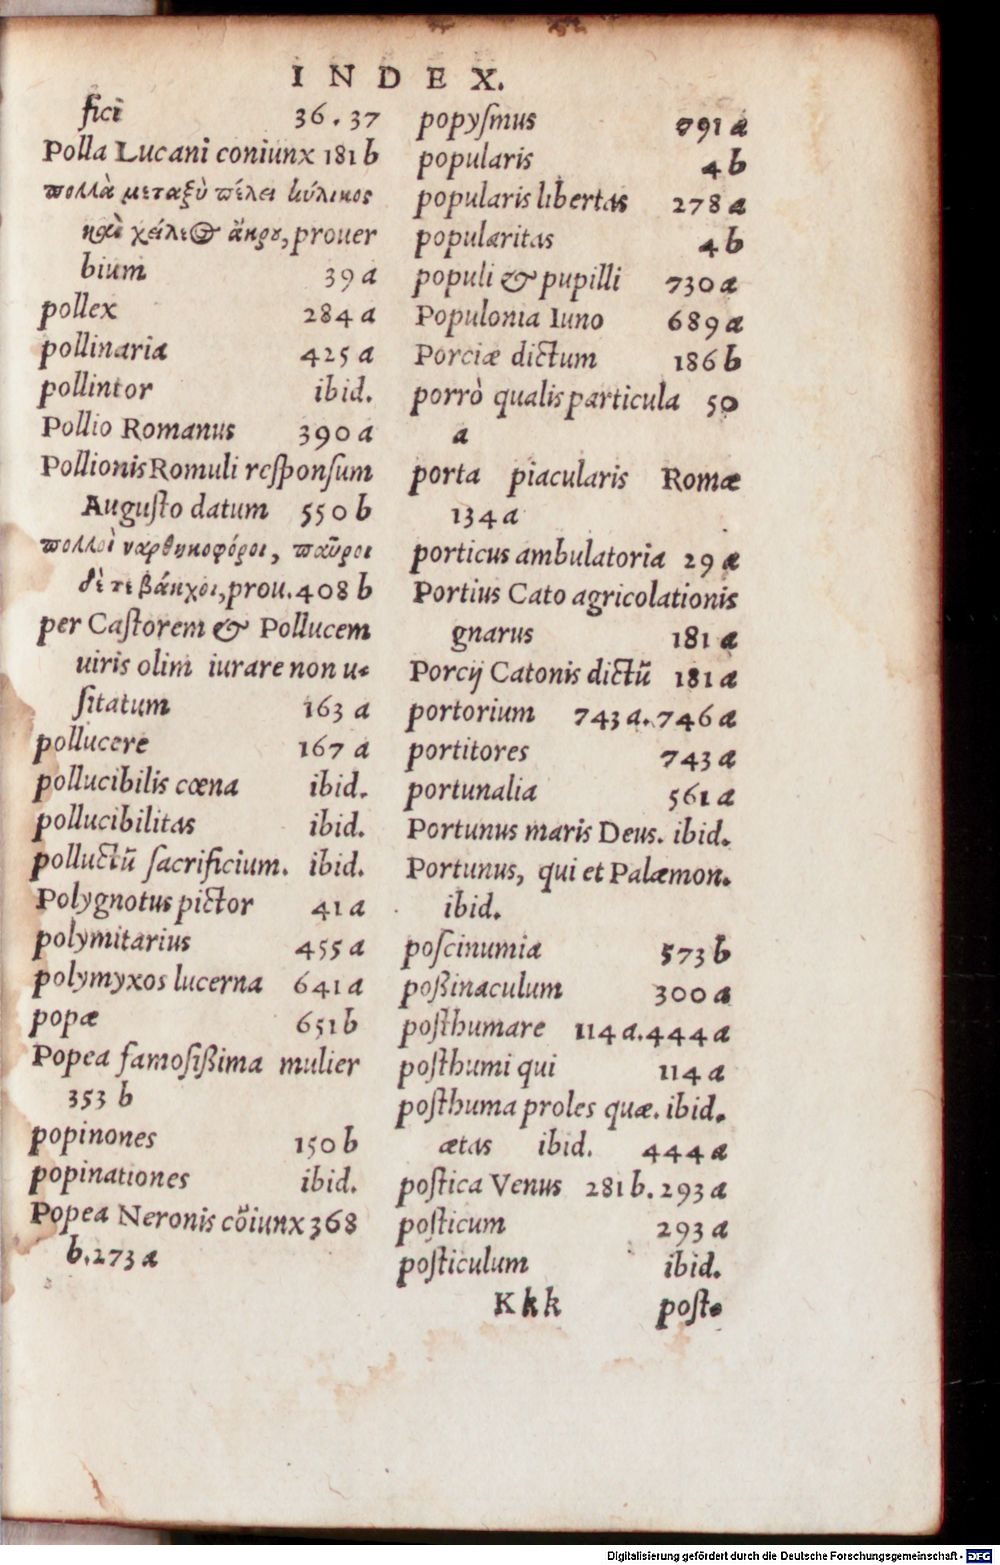 INDEX.
fici 36.37
Polla Lucani coniunx 181 b
πολλὰ μεταξὺ πέλει κύλικος
καὶ χείλεος ἄκρου, prouer
bium 39 a
pollex 284 a
pollinaria 425 a
pollintor ibid.
Pollio Romanus 390 a
Pollionis Romuli reſponſum
Auguſto datum 550 b
πολλοὶ ναρθηκοφόροι, παῦροι
δὲ τε βάκχοι, prou. 408 b
per Caſtorem & Pollucem
uiris olim iurare non u-
ſitatum 163 a
pollucere 167 a
pollucibilis cœna ibid.
pollucibilitas ibid.
polluctũ ſacrificium. ibid.
Polygnotus pictor 41 a
polymitarius 455 a
polymyxos lucerna 641 a
popæ 651 b
Popea famoſißima mulier
353 b
popinones 150 b
popinationes ibid.
Popea Neronis cõiunx 368
b. 273 a
popyſmus 791 a
popularis 4 b
popularis libertas 278 a
popularitas 4 b
populi & pupilli 730 a
Populonia Iuno 689 a
Porciæ dictum 186 b
porrò qualis particula 50
a
porta piacularis Romæ
134 a
porticus ambulatoria 29 a
Portius Cato agricolationis
gnarus 181 a
Porcij Catonis dictũ 181 a
portorium 743 a. 746 a
portitores 743 a
portunalia 561 a
Portunus maris Deus. ibid.
Portunus, qui et Palæmon.
ibid.
poſcinumia 573 b
poßinaculum 300 a
poſthumare 114 a. 444 a
poſthumi qui 114 a
poſthuma proles quæ. ibid.
ætas ibid. 444 a
poſtica Venus 281 b. 293 a
poſticum 293 a
poſticulum ibid.
Kkk poſt-
Digitalisierung gefördert durch die Deutsche Forschungsgemeinschaft - DFG